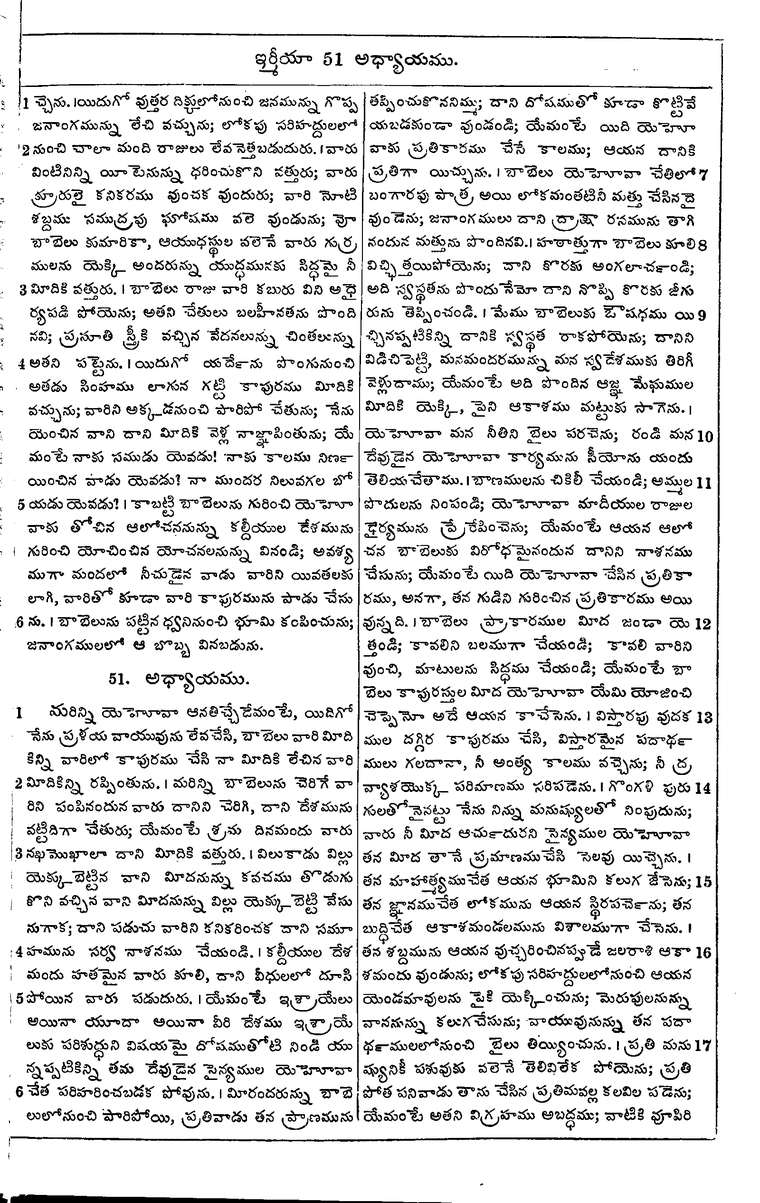 ఇర్మీయా 51 అధ్యాయము.
1 చ్చెను. ।యిదుగో వుత్తర దిక్కులోనుంచి జనమున్ను గొప్ప
జనాంగమున్ను లేచి వచ్చును; లోకపు సరిహద్దులలో
2 నుంచి చాలా మంది రాజులు లేవనెత్తబడుదురు. । వారు
వింటినిన్ని యీటెనున్ను ధరించుకొని వత్తురు; వారు
క్రూరులై కనికరము వుంచక వుందురు; వారి నోటి
శబ్దము సముద్రపు ఘోషము వలె వుండును; వో
బాబెలు కుమారికా, ఆయుధస్థుల వలెనే వారు గుర్ర
ములను యెక్కి అందరున్ను యుద్ధమునకు సిద్ధమై నీ
3 మీదికి వత్తురు. । బాబెలు రాజు వారి కబురు విని అధై
ర్యపడి పోయెను; అతని చేతులు బలహీనతను పొంది
నవి; ప్రసూతి స్త్రీకి వచ్చిన వేదనలున్ను చింతలున్ను
4 అతని పట్టెను. । యిదుగో యర్దేను పొంగునుంచి
అతడు సింహము లాగున గట్టి కాపురము మీదికి
వచ్చును; వారిని అక్కడనుంచి పారిపో చేతును; నేను
యెంచిన వాని దాని మీదికి వెళ్ల నాజ్ఞాపింతును; యే
మంటే నాకు సముడు యెవడు? నాకు కాలము నిర్ణ
యించిన వాడు యెవడు? నా ముందర నిలువగల బో
5 యడు యెవడు? । కాబట్టి బాబెలును గురించి యెహోవా
వాకు తోచిన ఆలోచననున్ను కల్దీయుల దేశమును
గురించి యోచించిన యోచనలనున్ను వినండి; అవశ్య
ముగా మందలో నీచుడైన వాడు వారిని యివతలకు
లాగి, వారితో కూడా వారి కాపురమును పాడు చేసు
6 ను. । బాబెలును పట్టిన ధ్వనినుంచి భూమి కంపించును;
జనాంగములలో ఆ బొబ్బ వినబడును.
51. అధ్యాయము.
1 మరిన్ని యెహోవా ఆనతిచ్చేదేమంటే, యిదిగో
నేను ప్రళయ వాయువును లేవచేసి, బాబెలు వారి మీది
కిన్ని వారిలో కాపురము చేసి నా మీదికి లేచిన వారి
2 మీదికిన్ని రప్పింతును. । మరిన్ని బాబెలును చెరిగే వా
రిని పంపినందున వారు దానిని చెరిగి, దాని దేశమును
వట్టిదిగా చేతురు; యేమంటే శ్రమ దినమందు వారు
3 నఖముఖాలా దాని మీదికి వత్తురు. । విలుకాడు విల్లు
యెక్కుబెట్టిన వాని మీదనున్ను కవచము తొడుగు
కొని వచ్చిన వాని మీదనున్ను విల్లు యెక్కుబెట్టి వేసు
నుగాక; దాని పడుచు వారిని కనికరించక దాని సమూ
4 హమును సర్వ నాశనము చేయండి. । కల్దీయుల దేశ
మందు హతమైన వారు కూలి, దాని వీధులలో దూసి
5 పోయిన వారు పడుదురు. । యేమంటే ఇశ్రాయేలు
అయినా యూదా అయినా వీరి దేశము ఇశ్రాయే
లుకు పరిశుద్ధుని విషయమై దోషముతోటి నిండి యు
న్నప్పటికిన్ని తమ దేవుడైన సైన్యముల యెహోవా
6 చేత పరిహరించబడక పోవును. । మీరందరున్ను బాబె
లులోనుంచి పారిపోయి, ప్రతివాడు తన ప్రాణమును
తప్పించుకొననిమ్ము; దాని దోషముతో కూడా కొట్టివే
యబడకుండా వుండండి; యేమంటే యిది యెహో
వాకు ప్రతికారము చేసే కాలము; ఆయన దానికి
ప్రతిగా యిచ్చును. । బాబెలు యెహోవా చేతిలో 7
బంగారపు పాత్ర అయి లోకమంతటినీ మత్తు చేసినదై
వుండెను; జనాంగములు దాని ద్రాక్షా రసమును తాగి
నందున మత్తును పొందినవి. । హఠాత్తుగా బాబెలు కూలి 8
విచ్ఛిత్తయిపోయెను; దాని కొరకు అంగలార్చండి;
అది స్వస్థతను పొందునేమో దాని నొప్పి కొరకు జీగు
రును తెప్పించండి. । మేము బాబెలుకు ఔషధము యి 9
చ్చినప్పటికిన్ని దానికి స్వస్థత రాకపోయెను; దానిని
విడిచిపెట్టి, మనమందరమున్ను మన స్వదేశముకు తిరిగీ
వెళ్లుదాము; యేమంటే అది పొందిన ఆజ్ఞ మేఘముల
మీదికి యెక్కి, పైని ఆకాశము మట్టుకు సాగెను. ।
యెహోవా మన నీతిని బైలు పరచెను; రండి మన 10
దేవుడైన యెహోవా కార్యమును సీయోను యందు
తెలియచేతాము. । బాణములను చికిలీ చేయండి; అమ్ముల 11
పొదులను నింపండి; యెహోవా మాదీయుల రాజుల
ధైర్యమును ప్రేరేపించెను; యేమంటే ఆయన ఆలో
చన బాబెలుకు విరోధమైనందున దానిని నాశనము
చేసును; యేమంటే యిది యెహోవా చేసిన ప్రతికా
రము, అనగా, తన గుడిని గురించిన ప్రతికారము అయి
వున్నది. । బాబెలు ప్రాకారముల మీద జండా యె 12
త్తండి; కావలిని బలముగా చేయండి; కావలి వారిని
వుంచి, మాటులను సిద్ధము చేయండి; యేమంటే బా
బెలు కాపురస్తుల మీద యెహోవా యేమి యోజించి
చెప్పెనో అదే ఆయన కాచేసెను. । విస్తారపు వుదక 13
ముల దగ్గిర కాపురము చేసి, విస్తారమైన పదార్థ
ములు గలదానా, నీ అంత్య కాలము వచ్చెను; నీ ద్ర
వ్యాశయొక్క పరిమాణము సరిపడెను. । గొంగళి పురు 14
గులతోనైనట్టు నేను నిన్ను మనుష్యులతో నింపుదును;
వారు నీ మీద ఆర్చుదురని సైన్యముల యెహోవా
తన మీద తానే ప్రమాణముచేసి సెలవు యిచ్చెను. ।
తన మాహాత్మ్యముచేత ఆయన భూమిని కలుగ జేసెను; 15
తన జ్ఞానముచేత లోకమును ఆయన స్థిరపర్చెను; తన
బుద్ధిచేత ఆకాశమండలమును విశాలముగా చేసెను. ।
తన శబ్దమును ఆయన వుచ్చరించినప్పుడే జలరాశి ఆకా 16
శమందు వుండును; లోకపు సరిహద్దులలోనుంచి ఆయన
యెండమావులను పైకి యెక్కించును; మెరుపులనున్ను
వాననున్ను కలుగచేసును; వాయువునున్ను తన పదా
ర్థములలోనుంచి బైలు తెయ్యించును. । ప్రతి మను 17
ష్యునికీ పశువుకు వలెనే తెలివిలేక పోయెను; ప్రతి
పోత పనివాడు తాను చేసిన ప్రతిమవల్ల కలవిల పడెను;
యేమంటే అతని విగ్రహము అబద్ధము; వాటికి వూపిరి